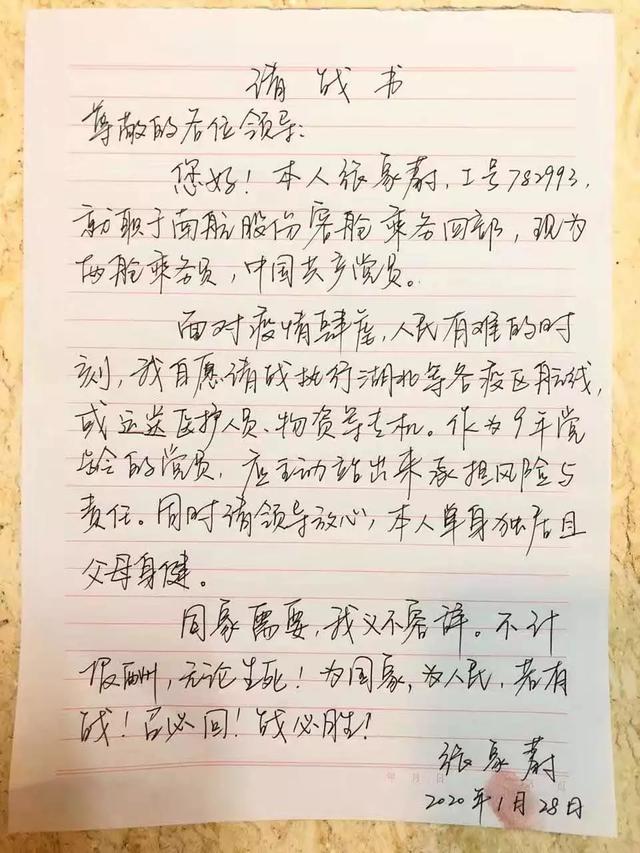 请战书
尊敬的各位领导:
您好!本人张家蔚,工号782993,
就职于南航股份客舱乘务四部,现为
两舱乘务员,中国共产党员。
面对疫情肆虐,人民有难的时
刻,我自愿请战执行湖北等各疫区航线,
或运送医护人员、物资等专机。作为9年党
龄的党员,应主动站出来承担风险与
责任。同时请领导放心,本人单身独居且
父母身健。
国家需要,我义不容辞。不计
报酬,无论生死!为国家,为人民,若有
战!召必回!战必胜!
张家蔚
年 月 日
2020年1月28日